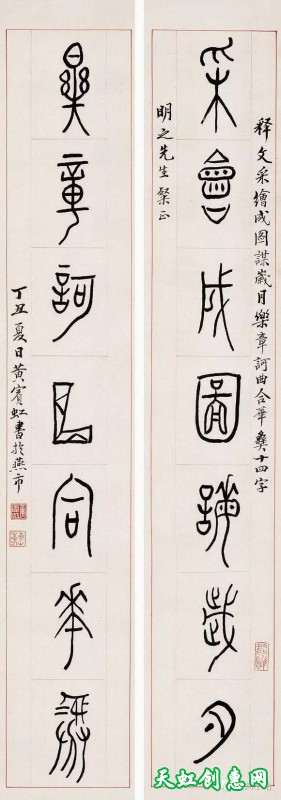 釋文采繪成图謀歲月樂章訶曲合華彝十四字
采會成圖謀歲月
明之先生粲正
樂章訶曲合華彝
丁丑夏日黄賓虹書於燕市
天虹创意网